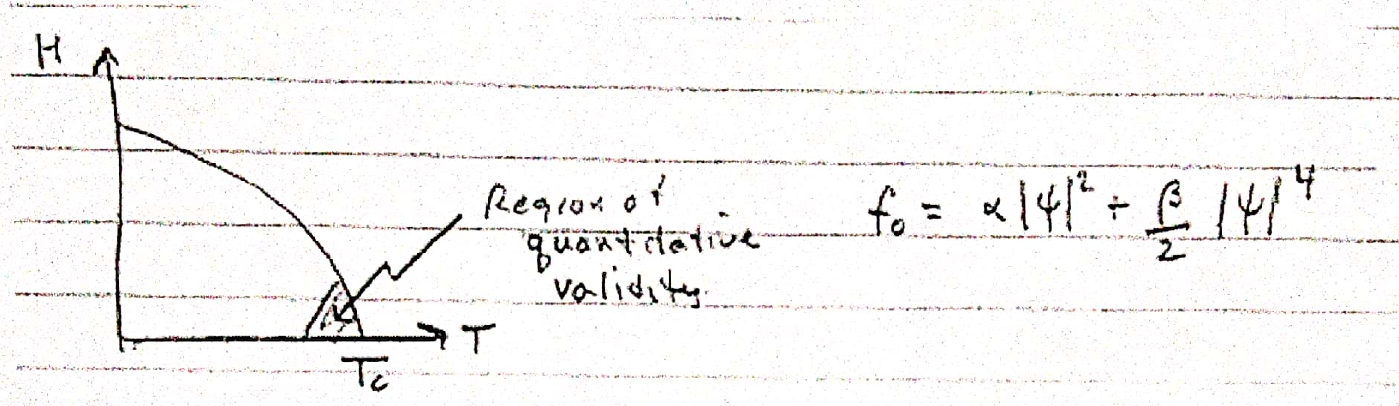 H
Region of
quantitative
validity.
T
Tc
f₀ = α|ψ|² + β/2 |ψ|⁴